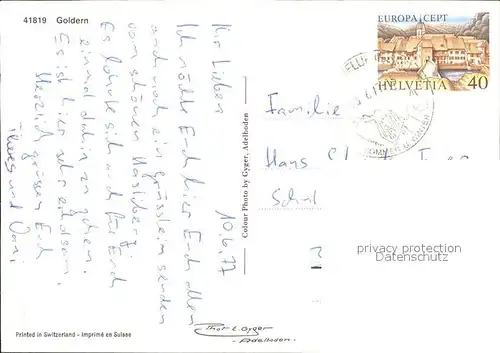 41819 Goldern
10.6.77
Ihr Lieben
Ich möchte Euch hier Euch allen
auch noch ein grüsslein senden
vom schönen Hasliberg.
Es lohnte sich auch für Euch
einmal dahin zu gehen.
Es ist hier sehr erholsam.
Herzlich grüssen Euch
und Vroni
Colour Photo by Gyger, Adelboden
EUROPA CEPT
HELVETIA 40
Familie
Hans
Schul
privacy protection
Datenschutz
Printed in Switzerland - Imprimé en Suisse
Phot. E. Gyger
- Adelboden.